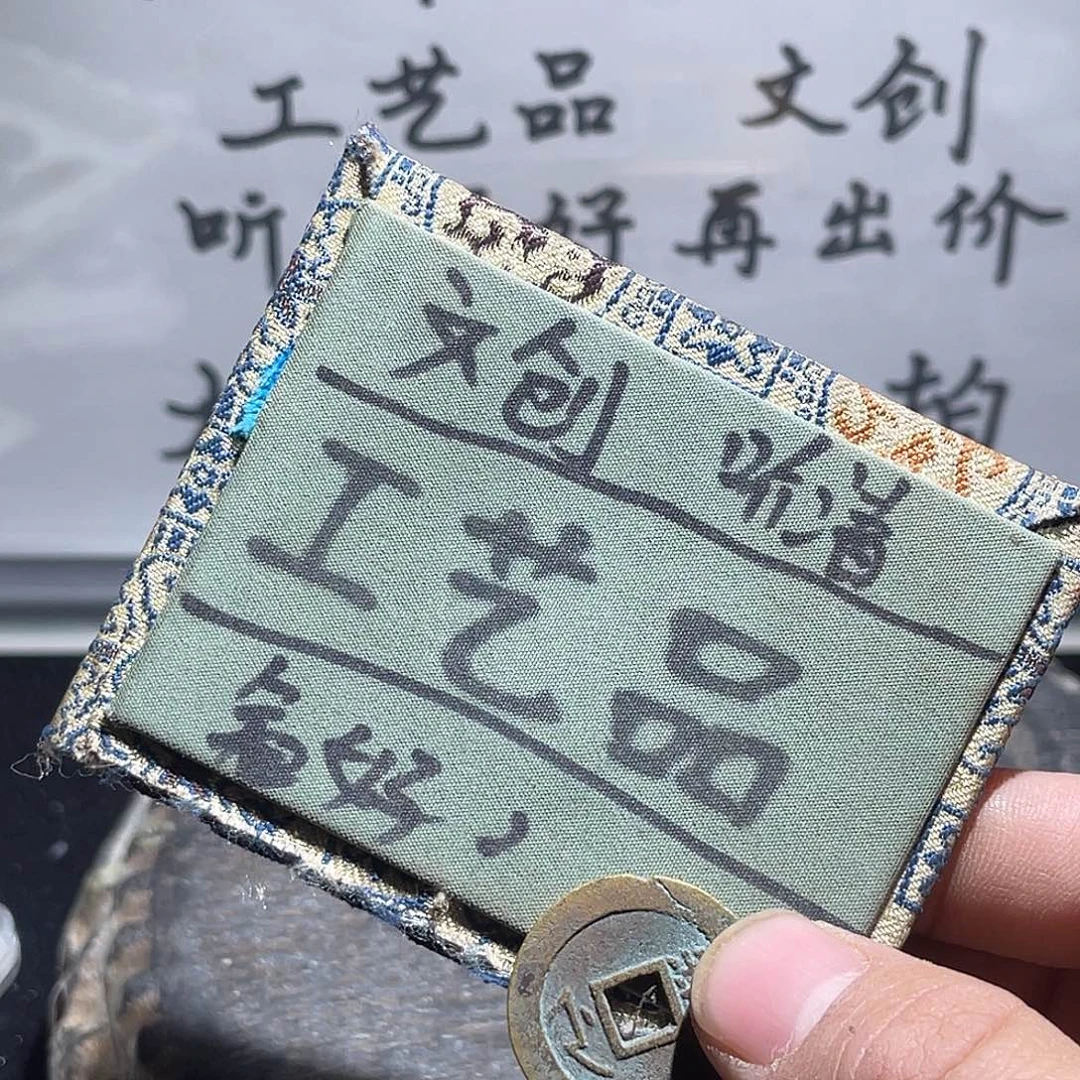 工艺品 文创
听 好再出价
拍
文创 听清
工艺品
看好